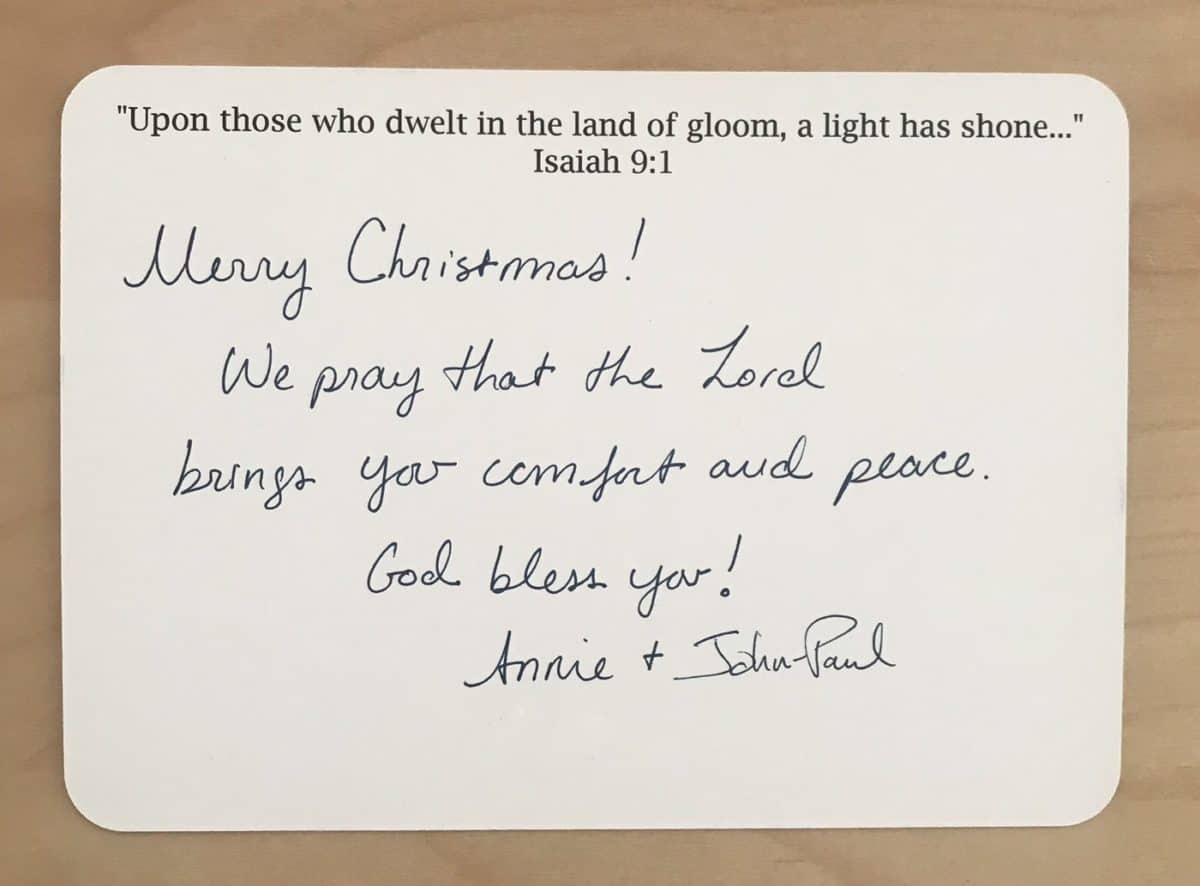 "Upon those who dwelt in the land of gloom, a light has shone..."
Isaiah 9:1
Merry Christmas!
We pray that the Lord
brings you comfort and peace.
God bless you!
Annie + John-Paul